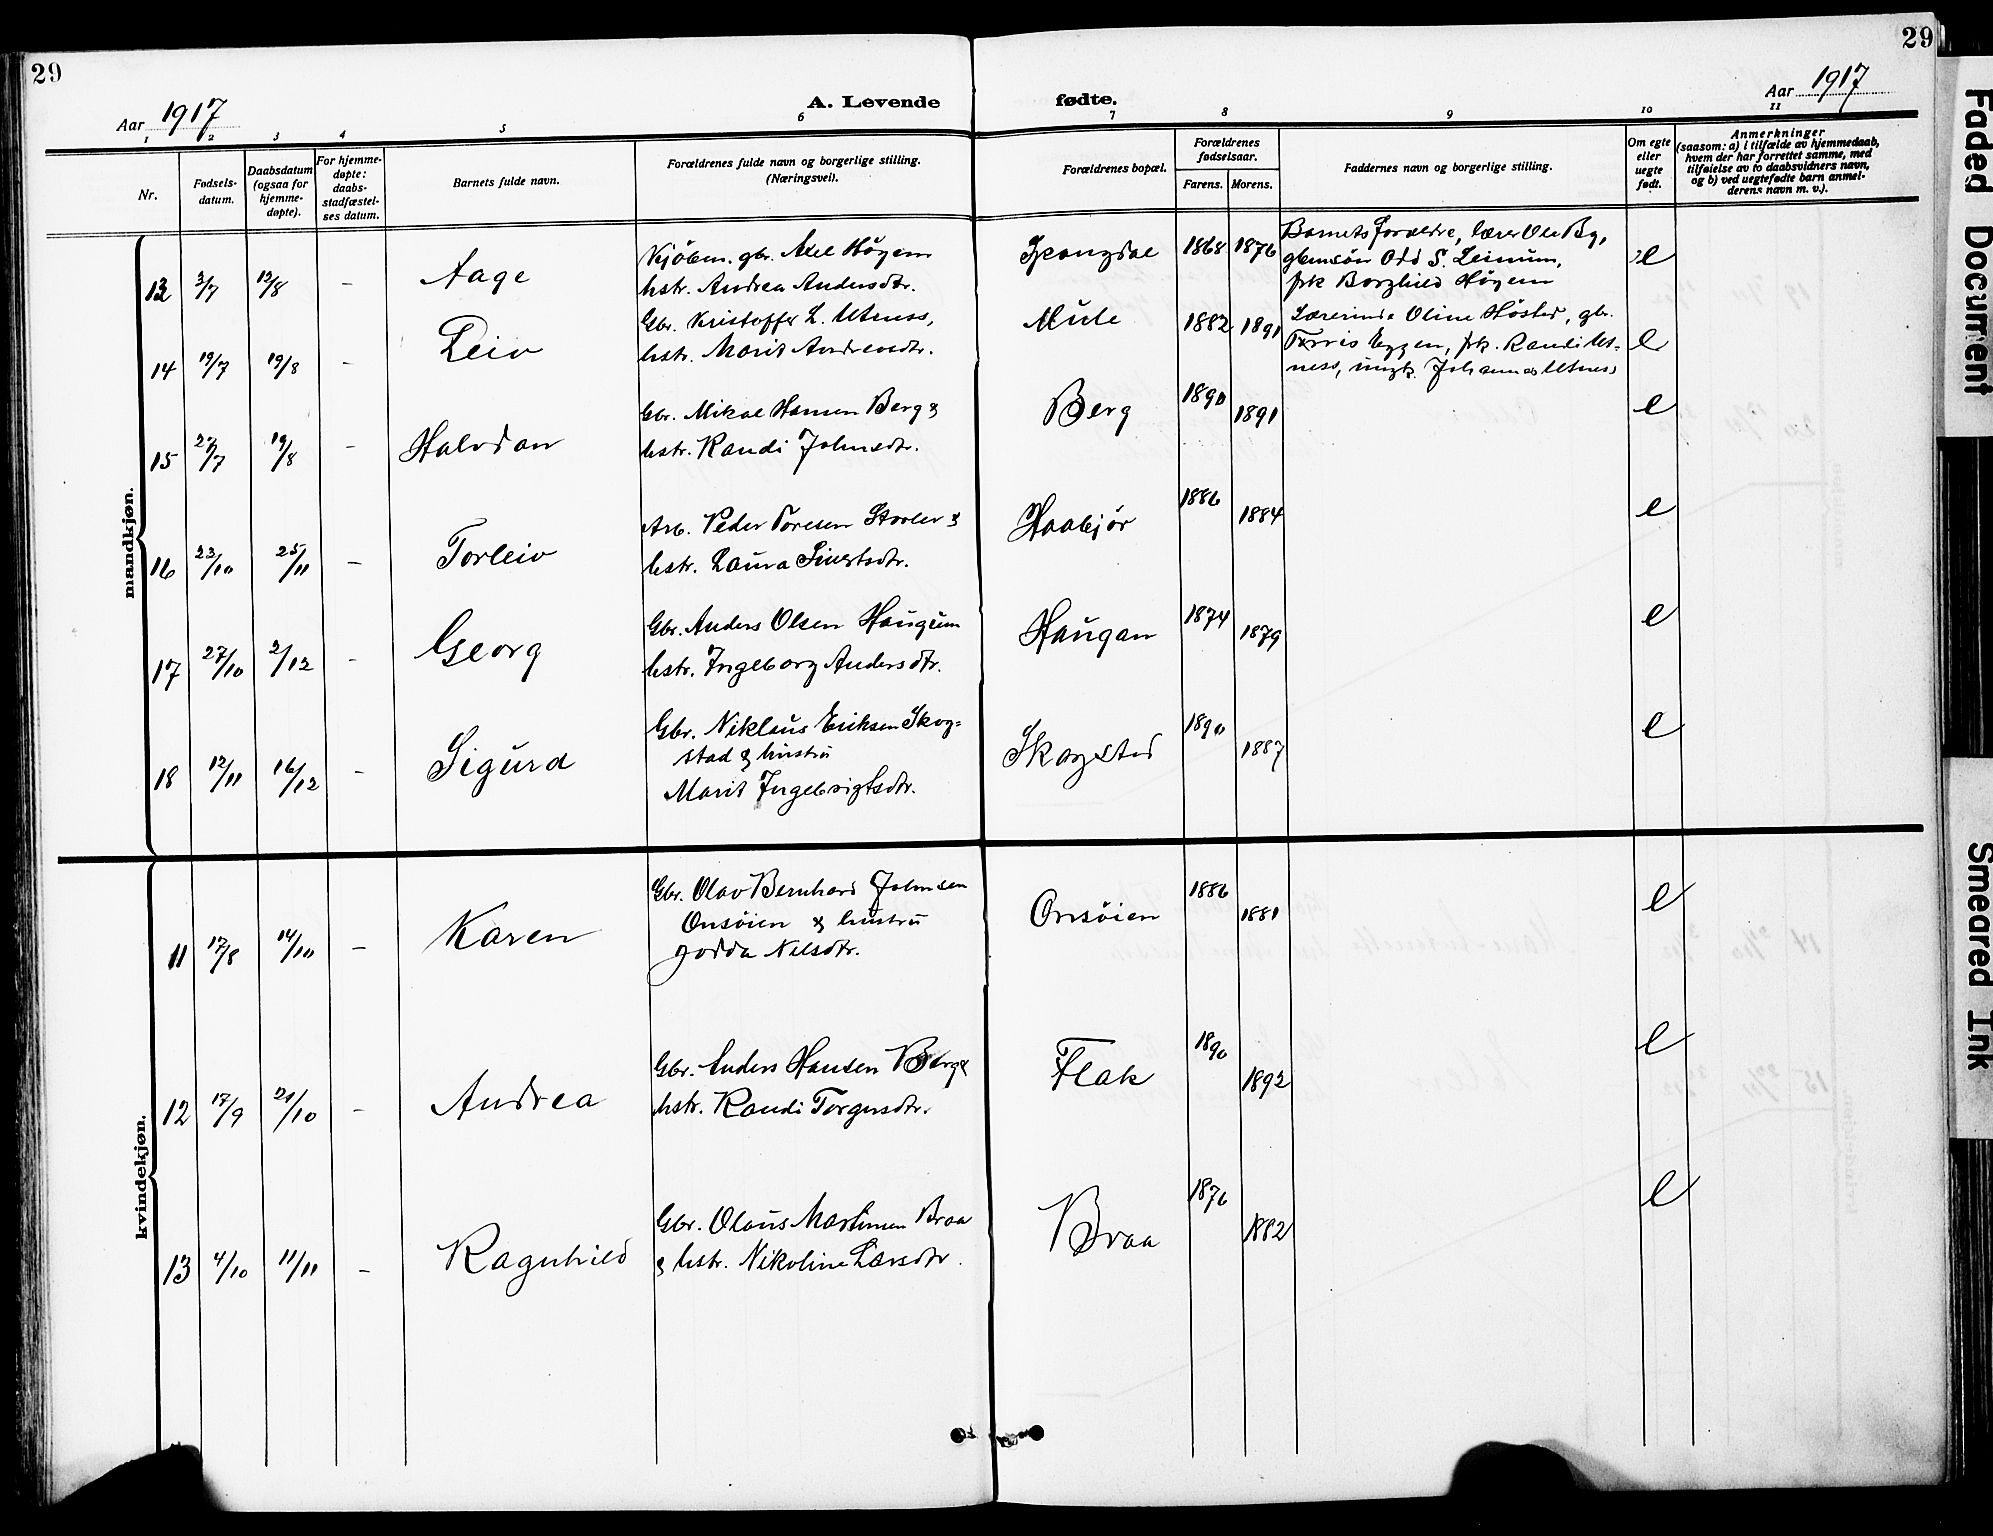 29
29
Aar 1917
A. Levende fødte.
Aar 1917
1 2 3 4 5 6 7 8 9 10 11
Nr.
Fødsels-
datum.
Daabsdatum
(ogsaa for
hjemme-
døpte).
For hjemme-
døpte:
daabs-
stadfæstel-
ses datum.
Barnets fulde navn.
Forældrenes fulde navn og borgerlige stilling.
(Næringsvei).
Forældrenes bopæl.
Forældrenes
fødselsaar.
Farens. Morens.
Faddernes navn og borgerlige stilling.
Om egte
eller
uegte
født.
Anmerkninger
(saasom: a) i tilfælde av hjemmedaab,
hvem der har forrettet samme, med
tilføielse av to daabsvidners navn,
og b) ved uegtefødte barn anmel-
derens navn m. v.).
mandkjøn.
13 3/7 12/8 - Aage
Kjöbm. gbr. Axel Höyem
hstr. Andrea Andersdtr.
1868 1876
Barnets forældre, lærer Ole By,
Odd S. Leinum,
frk Borghild Höyem
e
14 19/7 19/8 - Leiv
Gbr. Kristoffer L. Utness,
hstr. Marit Andreasdtr.
Mule 1882 1891
Lærerinde Oline Høstad, gbr.
Eggen, frk. Randi Ut-
ness, ungk. Johannes Utness
e
15 27/7 19/8 - Halvdan
Gbr. Mikal Hansen Berg &
hstr. Randi Johnsdtr.
Berg 1890 1891 e
16 23/10 25/11 - Torleiv
Arb. Peder Toresen &
hstr. Laura Sivertsdtr.
Haabjør 1886 1884 e
17 27/10 2/12 - Georg
Gbr. Anders Olsen Haugum
hstr. Ingeborg Andersdtr.
Haugan 1874 1879 e
18 12/11 16/12 - Sigurd
Gbr. Niklaus Eriksen Skog=
stad & hustru
Marit Ingebrigtsdtr.
Skogstad 1890 1887 e
kvindekjøn.
11 17/8 14/10 - Karen
Gbr. Olav Bernhard Johnsen
Onsöien & hustru
Nilsdtr.
Onsöien 1886 1881 e
12 17/9 21/10 - Andrea
Gbr. Anders Hansen Berg &
hstr. Randi Torgersdtr.
Flak 1890 1892 e
13 4/10 11/11 - Ragnhild
Gbr. Olaus Martinsen Braa
& hstr. Nikoline Larsdtr.
Braa 1876 1882 e
Faded Document
Smeared Ink